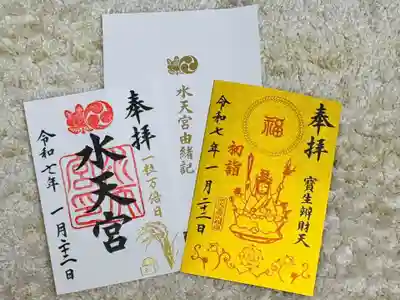 奉拝
一粒万倍日
水天宮
令和七年
一月二十二日
水天宮由緒記
奉拝
寳生辨財天
福
初詣
令和七年
一月二十二日